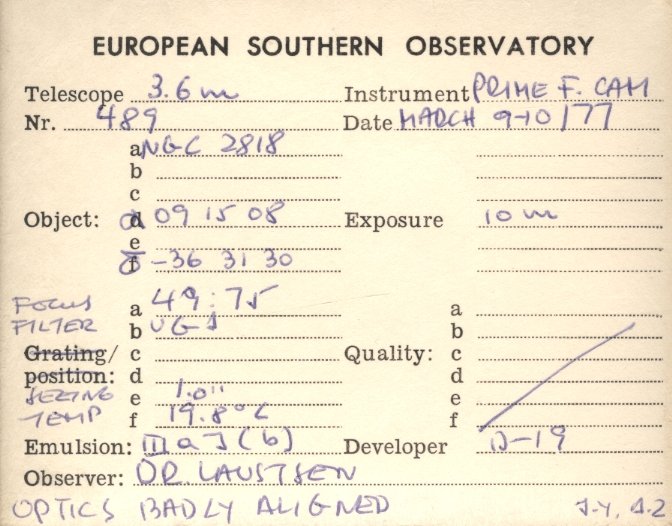 EUROPEAN SOUTHERN OBSERVATORY
Telescope 3.6 m Instrument PRIME F. CAM
Nr. 489 Date MARCH 9-10/77
a NGC 2818
b
c
Object: α d 09 15 08 Exposure 10 m
e
δ f -36 31 30
FOCUS a 49:75 a
FILTER b UG1 b
Grating/ c Quality: c
position: d d
SEEING e 1.0" e
TEMP f 19.8°C f
Emulsion: III a J (b) Developer D-19
Observer: DR. LAUSTSEN
OPTICS BADLY ALIGNED J.Y,